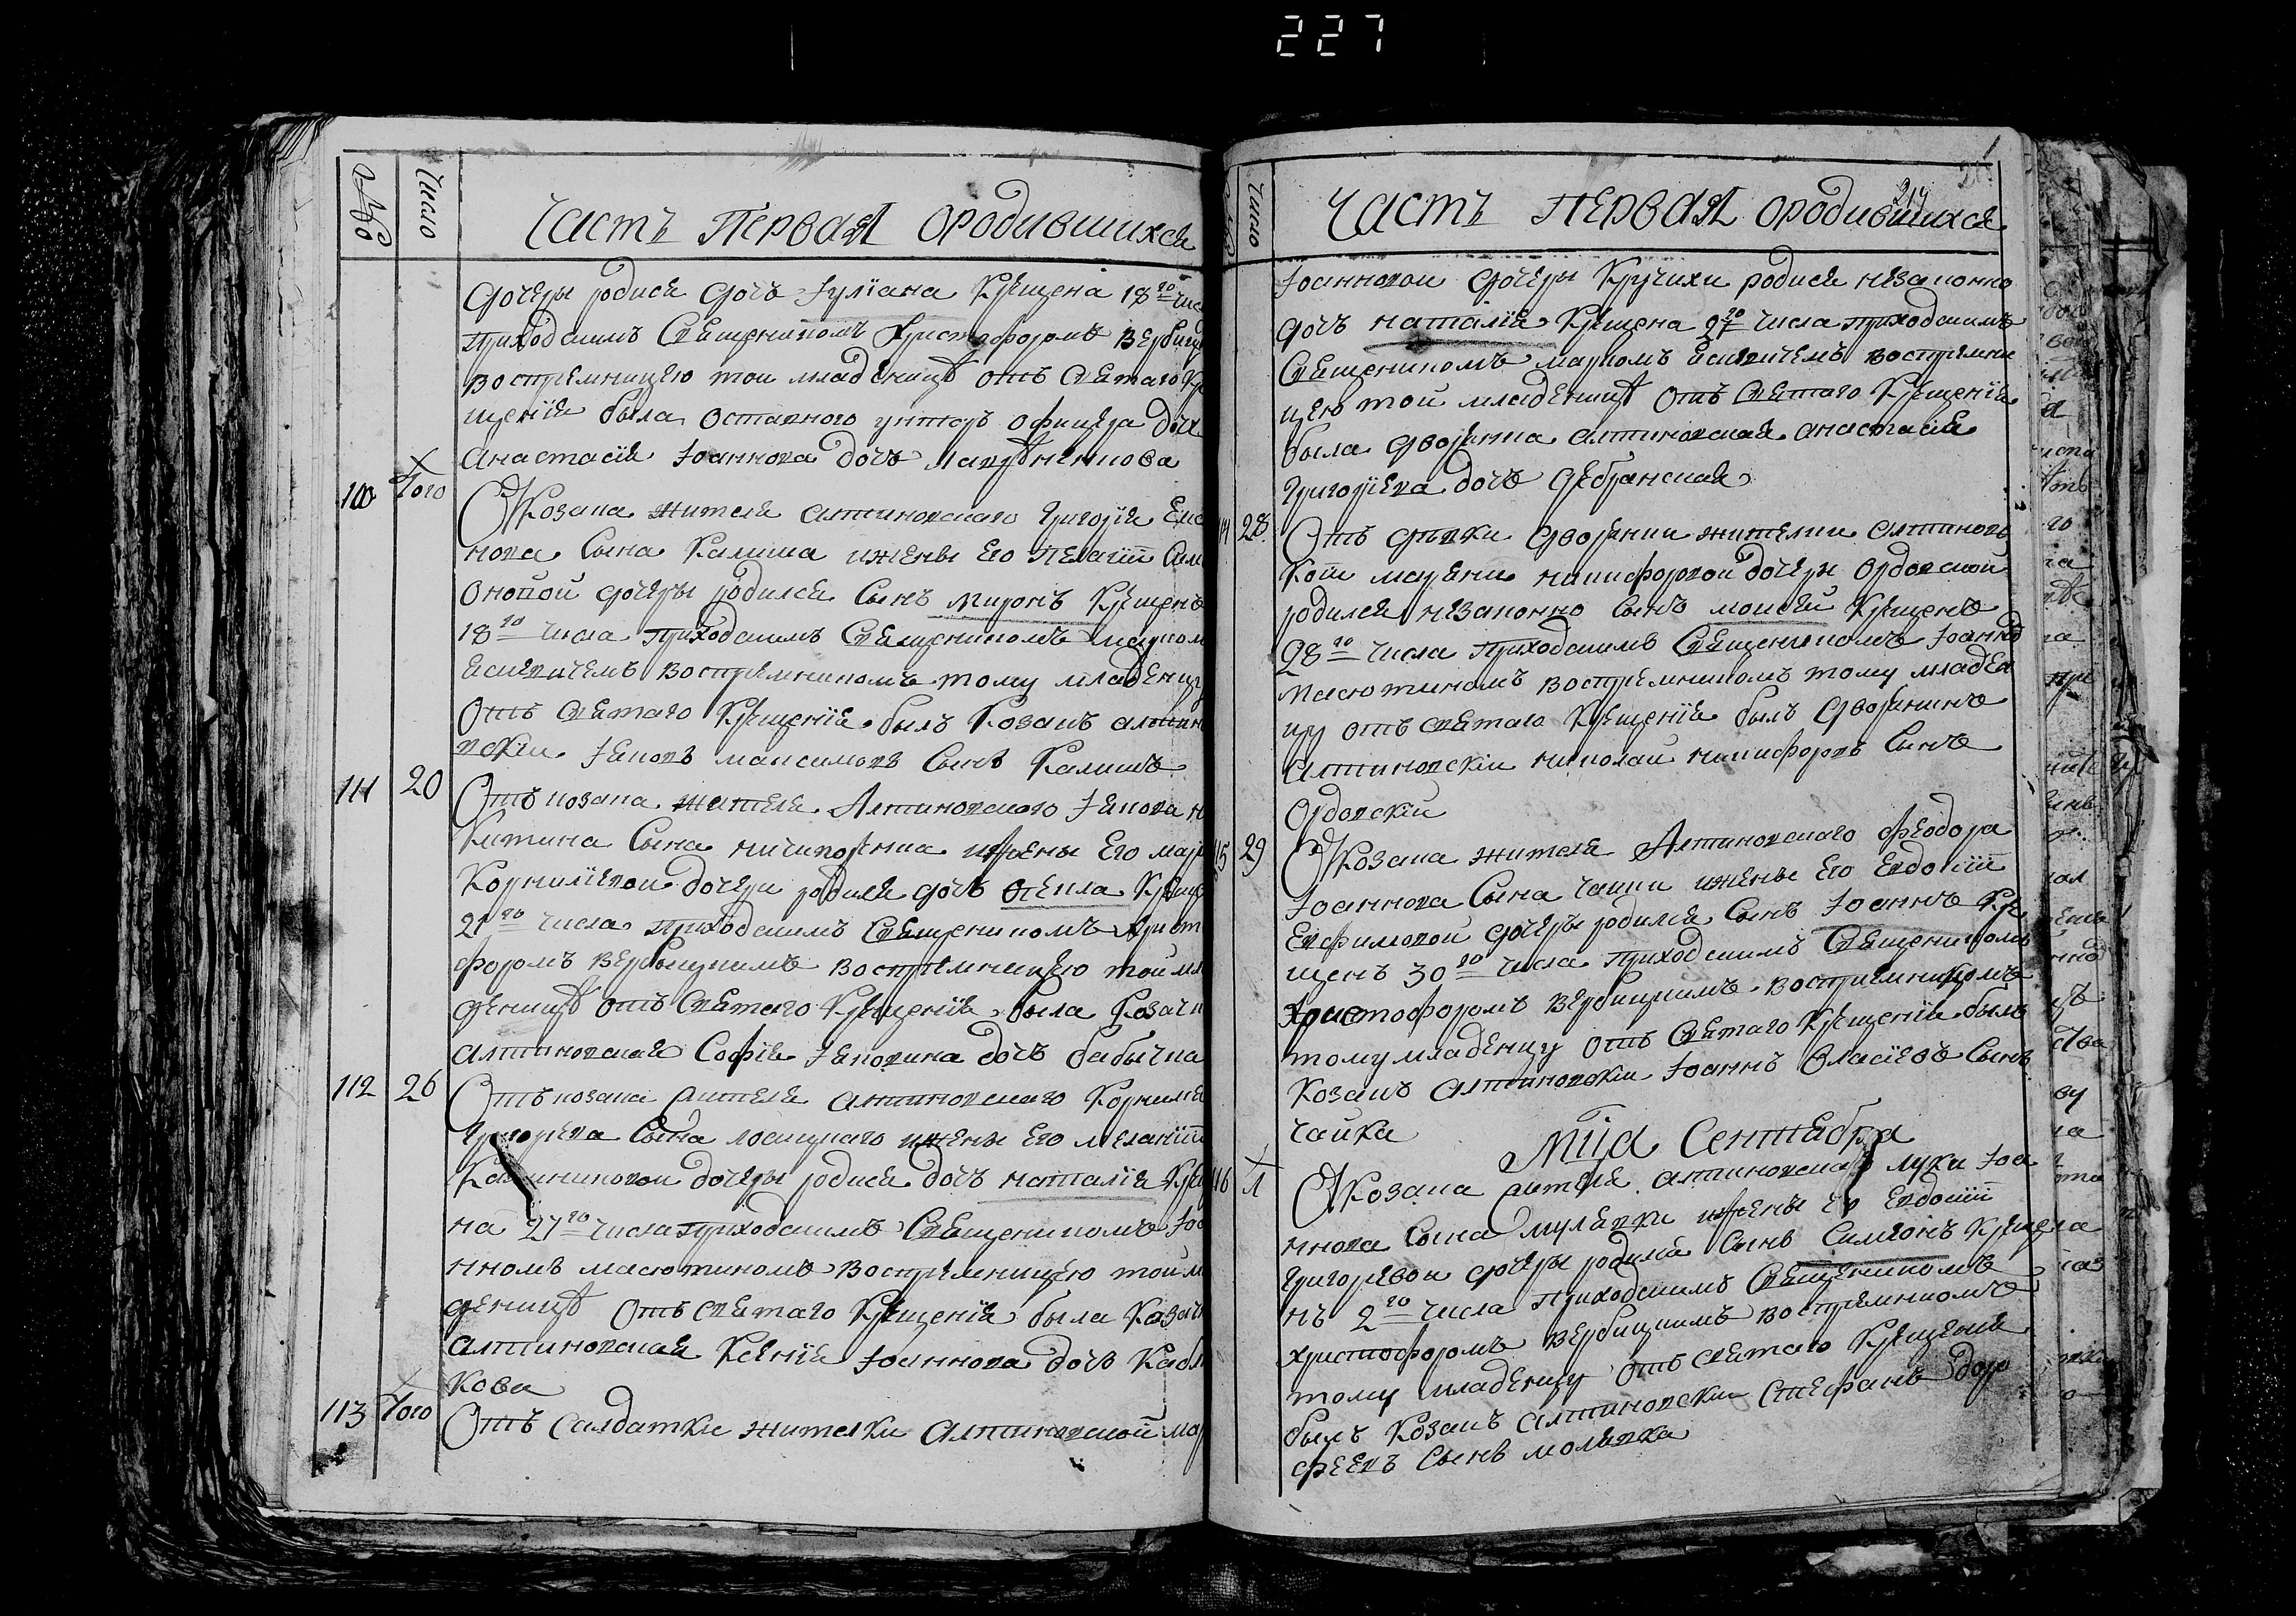 227
№
Число
Часть Первая ородившихся
дочеры родися дочь Іуліана Крещена 18го чис
приходскимъ Священникомъ Христофоромъ Вербиц
воспріемницею той младеницѣ отъ Святаго Кр
щенія была Оставного унтеръ офицера
Анастасія Іоаннова дочь
110 Того
Козака жителя Алтиновского Григорія
нова Сына Калиша ижены Его Пелагіи Сим
оновой дочеры родился Сынъ Миронъ Крещенъ
18го числа приходскимъ Священникомъ Марком
воспріемникомъ тому младенц
Отъ Святаго Крещенія былъ Козакъ алтин
вскій Іаковъ максимовъ Сынъ Калишъ
111 20
Отъ козака жителя Алтиновского Іакова Н
китина Сына ничипоренка ижены Его мар
Корниліевой дочери родися дочь Фекла Крещ
21го числа приходскимъ Священникомъ Христ
форомъ Вербицкимъ воспріемницею той мл
деницѣ отъ Святаго Крещенія была Козачк
алтиновская Софія Іаковлина дочь бабычка
112 26
Отъ козака жителя алтиновского Корнилія
Григорієва Сына ижены Его меланіи
дочеры родися дочь наталія Кре
на 27го числа приходскимъ Священникомъ Іоа
нномъ масютиномъ воспріемницею той м
деницѣ Отъ Святаго Крещенія была Козачк
алтиновская Ксенія Іоаннова дочь
кова
113 Того
Отъ Салдатки жителки Алтиновской мар
Число
Часть первая ородившихся
214
Іоанновой дочеры Кручихи родися незаконно
дочь наталія Крещена 27го числа приходскимъ
Священникомъ маркомъ воспріемни
цею той младеницѣ Отъ Святаго Крещенія
была дворянка алтиновская анастасія
Григоріева дочь
28
Отъ дѣвки дворянки жителки алтиновс
кой никифоровой дочеры Ордовской
родился незаконно Сынъ моисей Крещенъ
28го числа приходскимъ Священникомъ Іоанно
масютиномъ воспріемникомъ тому младен
цу отъ святаго Крещенія былъ дворянинъ
алтиновскій николай никифоровъ Сынъ
Ордовскій
115 29
Козака жителя Алтиновского Феодора
Іоаннова Сына чайки ижены Его Евдокіи
Евфимовой дочеры родился Сынъ Іоаннъ Кре
щенъ 30го числа приходскимъ Священникомъ
Христофоромъ Вербицкимъ воспріемникомъ
тому младенцу отъ Святаго Крещенія былъ
Козакъ Алтиновскій Іоаннъ Власіевъ Сынъ
чайка
Мца Сентября
116 1
Козака жителя алтиновского луки Іоа
ннова Сына ижены его Евдокіи
Григорьевой дочеры родился Сынъ Симеонъ Креще
нъ 2го числа приходскимъ Священникомъ
Христофоромъ Вербицкимъ воспріемникомъ
тому младенцу Отъ святаго Крещенія
былъ Козакъ алтиновскій Стефанъ доро
феевъ Сынъ молявка